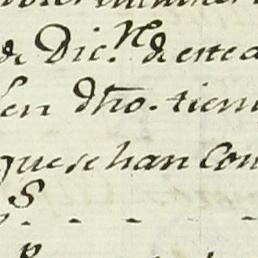 de Dic.re de este a
en dho. tiem
que se han con
S